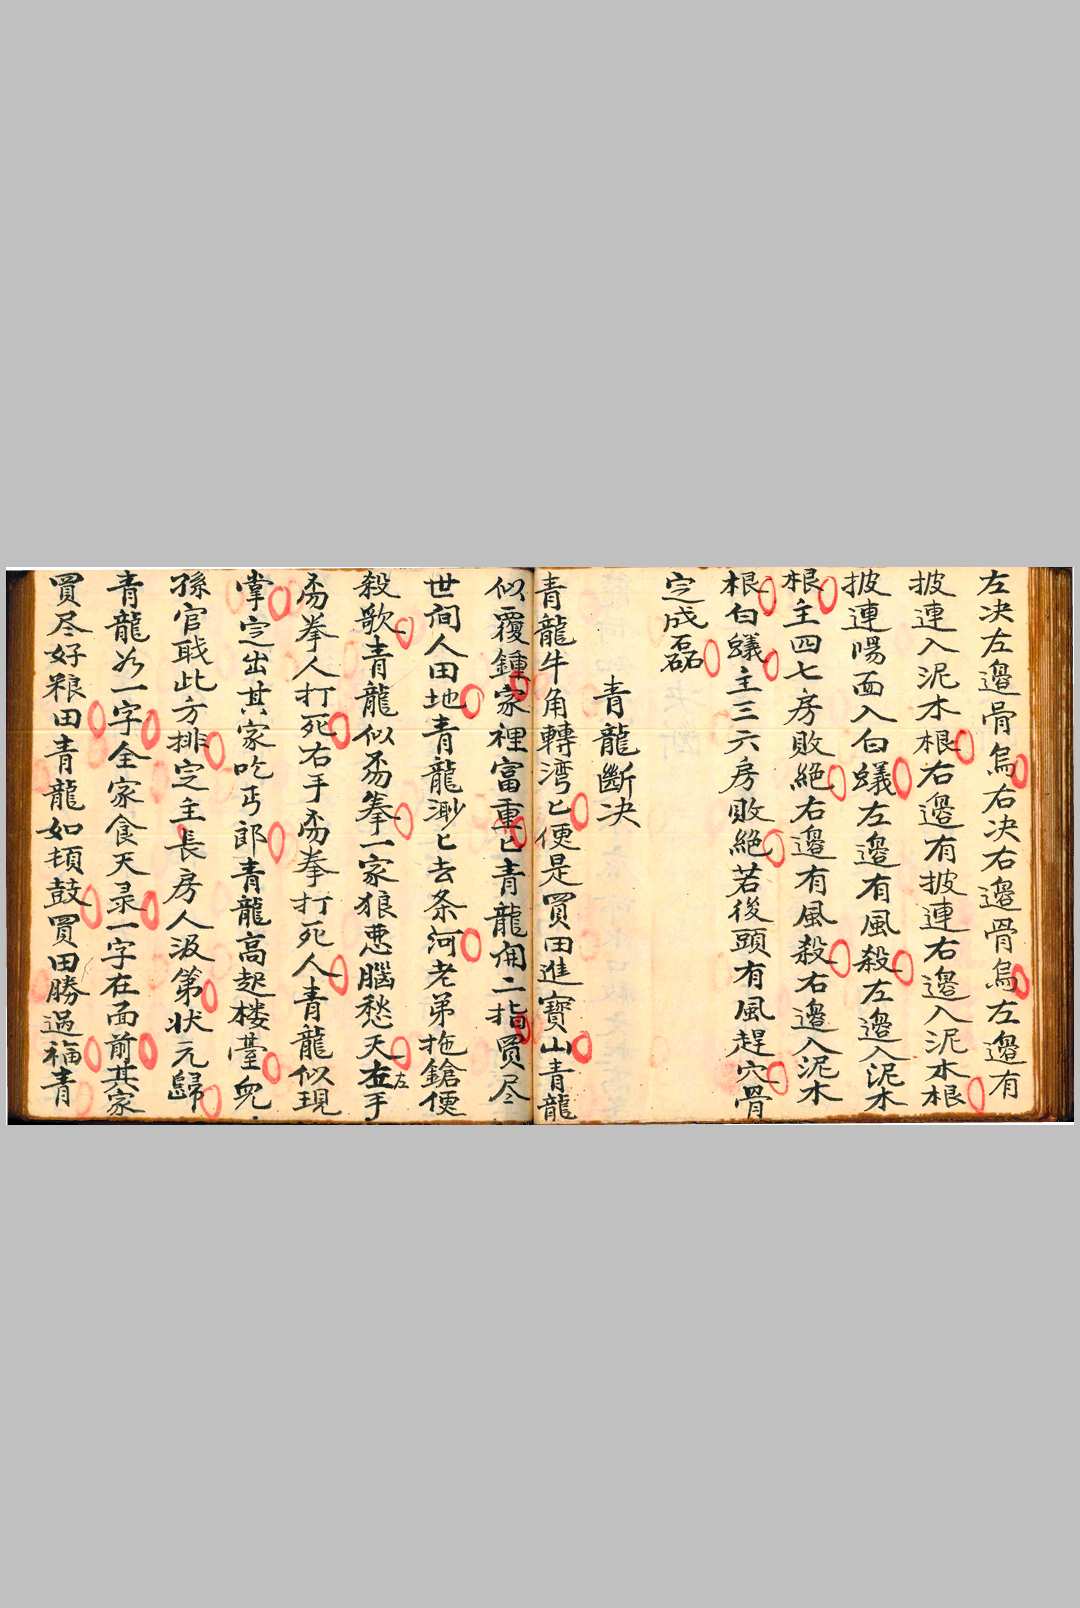 左决左邉骨烏右决右邉骨烏左邉有
披連入泥木根右邉有披連右邉入泥木根
披連陽面入白蟻左邉有風殺左邉入泥木
根主四七房敗絕右邉有風殺右邉入泥木
根白蟻主三六房敗絕若後頭有風趕穴骨
定成磊
青龍斷决
青龍牛角轉湾匕便是買田進寶山青龍
似覆鍾家裡富重匕青龍開二指買尽
世间人田地青龍渺匕去条河老弟拖鎗便
殺歌青龍似奀拳一家狼悪腦愁天左手
左
奀拳人打死右手奀拳打死人青龍似現
掌定出其家吃丐郎青龍高起楼臺兜
孫官戝此方排定主長房人汲第状元歸
青龍为一字全家食天录一字在面前其家
買尽好粮田青龍如頓鼓買田勝過福青